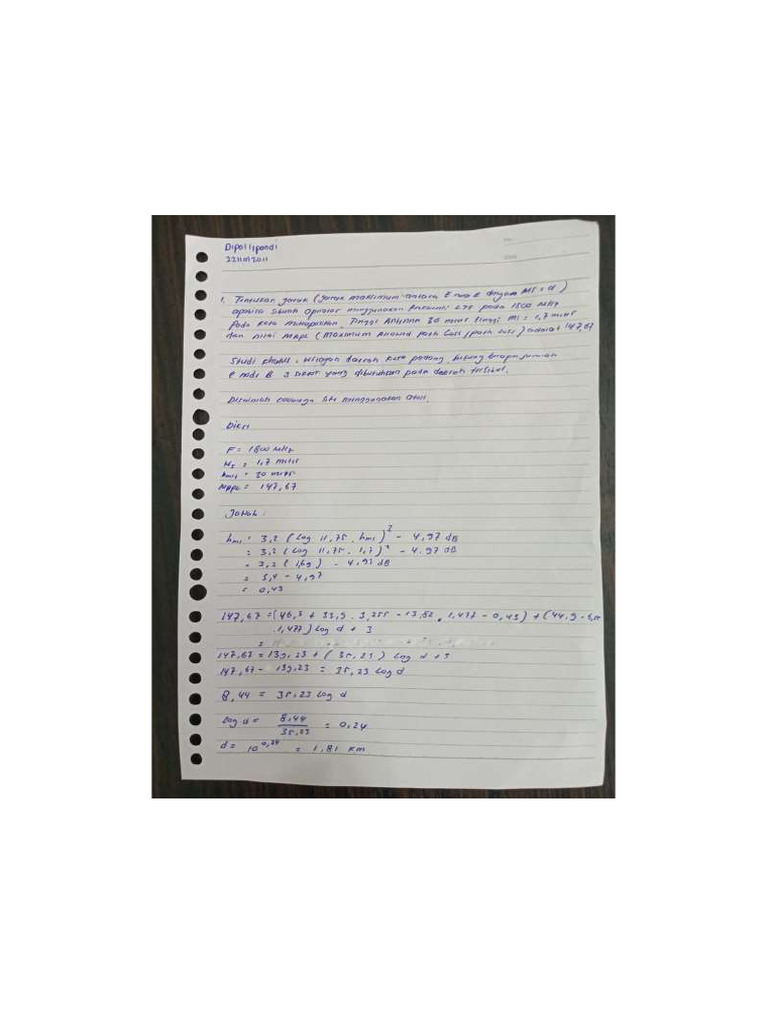 Dipo Ilpandi
221101
1. Tentukan jarak (jarak maksimum antara E node B dengan MS = d)
apabila sebuah operator menggunakan frekuensi LTE pada 1800 MHz
pada kota metropolitan. Tinggi Antenna 30 meter tinggi MS = 1,7 meter
dan nilai MAPL (Maximum Allowed Path Loss / path loss) adalah 147,67
Studi : wilayah daerah kota padang, hitung berapa jumlah
e node B 3 sektor yang dibutuhkan pada daerah tersebut.
coverage site menggunakan
Dik :
F = 1800 MHz
= 1,7 meter
= 30 meter
MAPL = 147,67
Jawab :
hms = 3,2 (Log 11,75 . hms)² - 4,97 dB
= 3,2 (Log 11,75 . 1,7)² - 4.97 dB
= 3,2 (1,69) - 4,97 dB
= 5,4 - 4,97
= 0,43
147,67 = (46,3 + 33,9 . 3,255 - 13,82 . 1,477 - 0,43) + (44,9 - 6,55
. 1,477) Log d + 3
147,67 = 139,23 + (35,23) Log d + 3
147,67 - 139,23 = 35,23 Log d
8,44 = 35,23 Log d
Log d = 8,44 / 35,23 = 0,24
d = 10^0,24 = 1,81 km